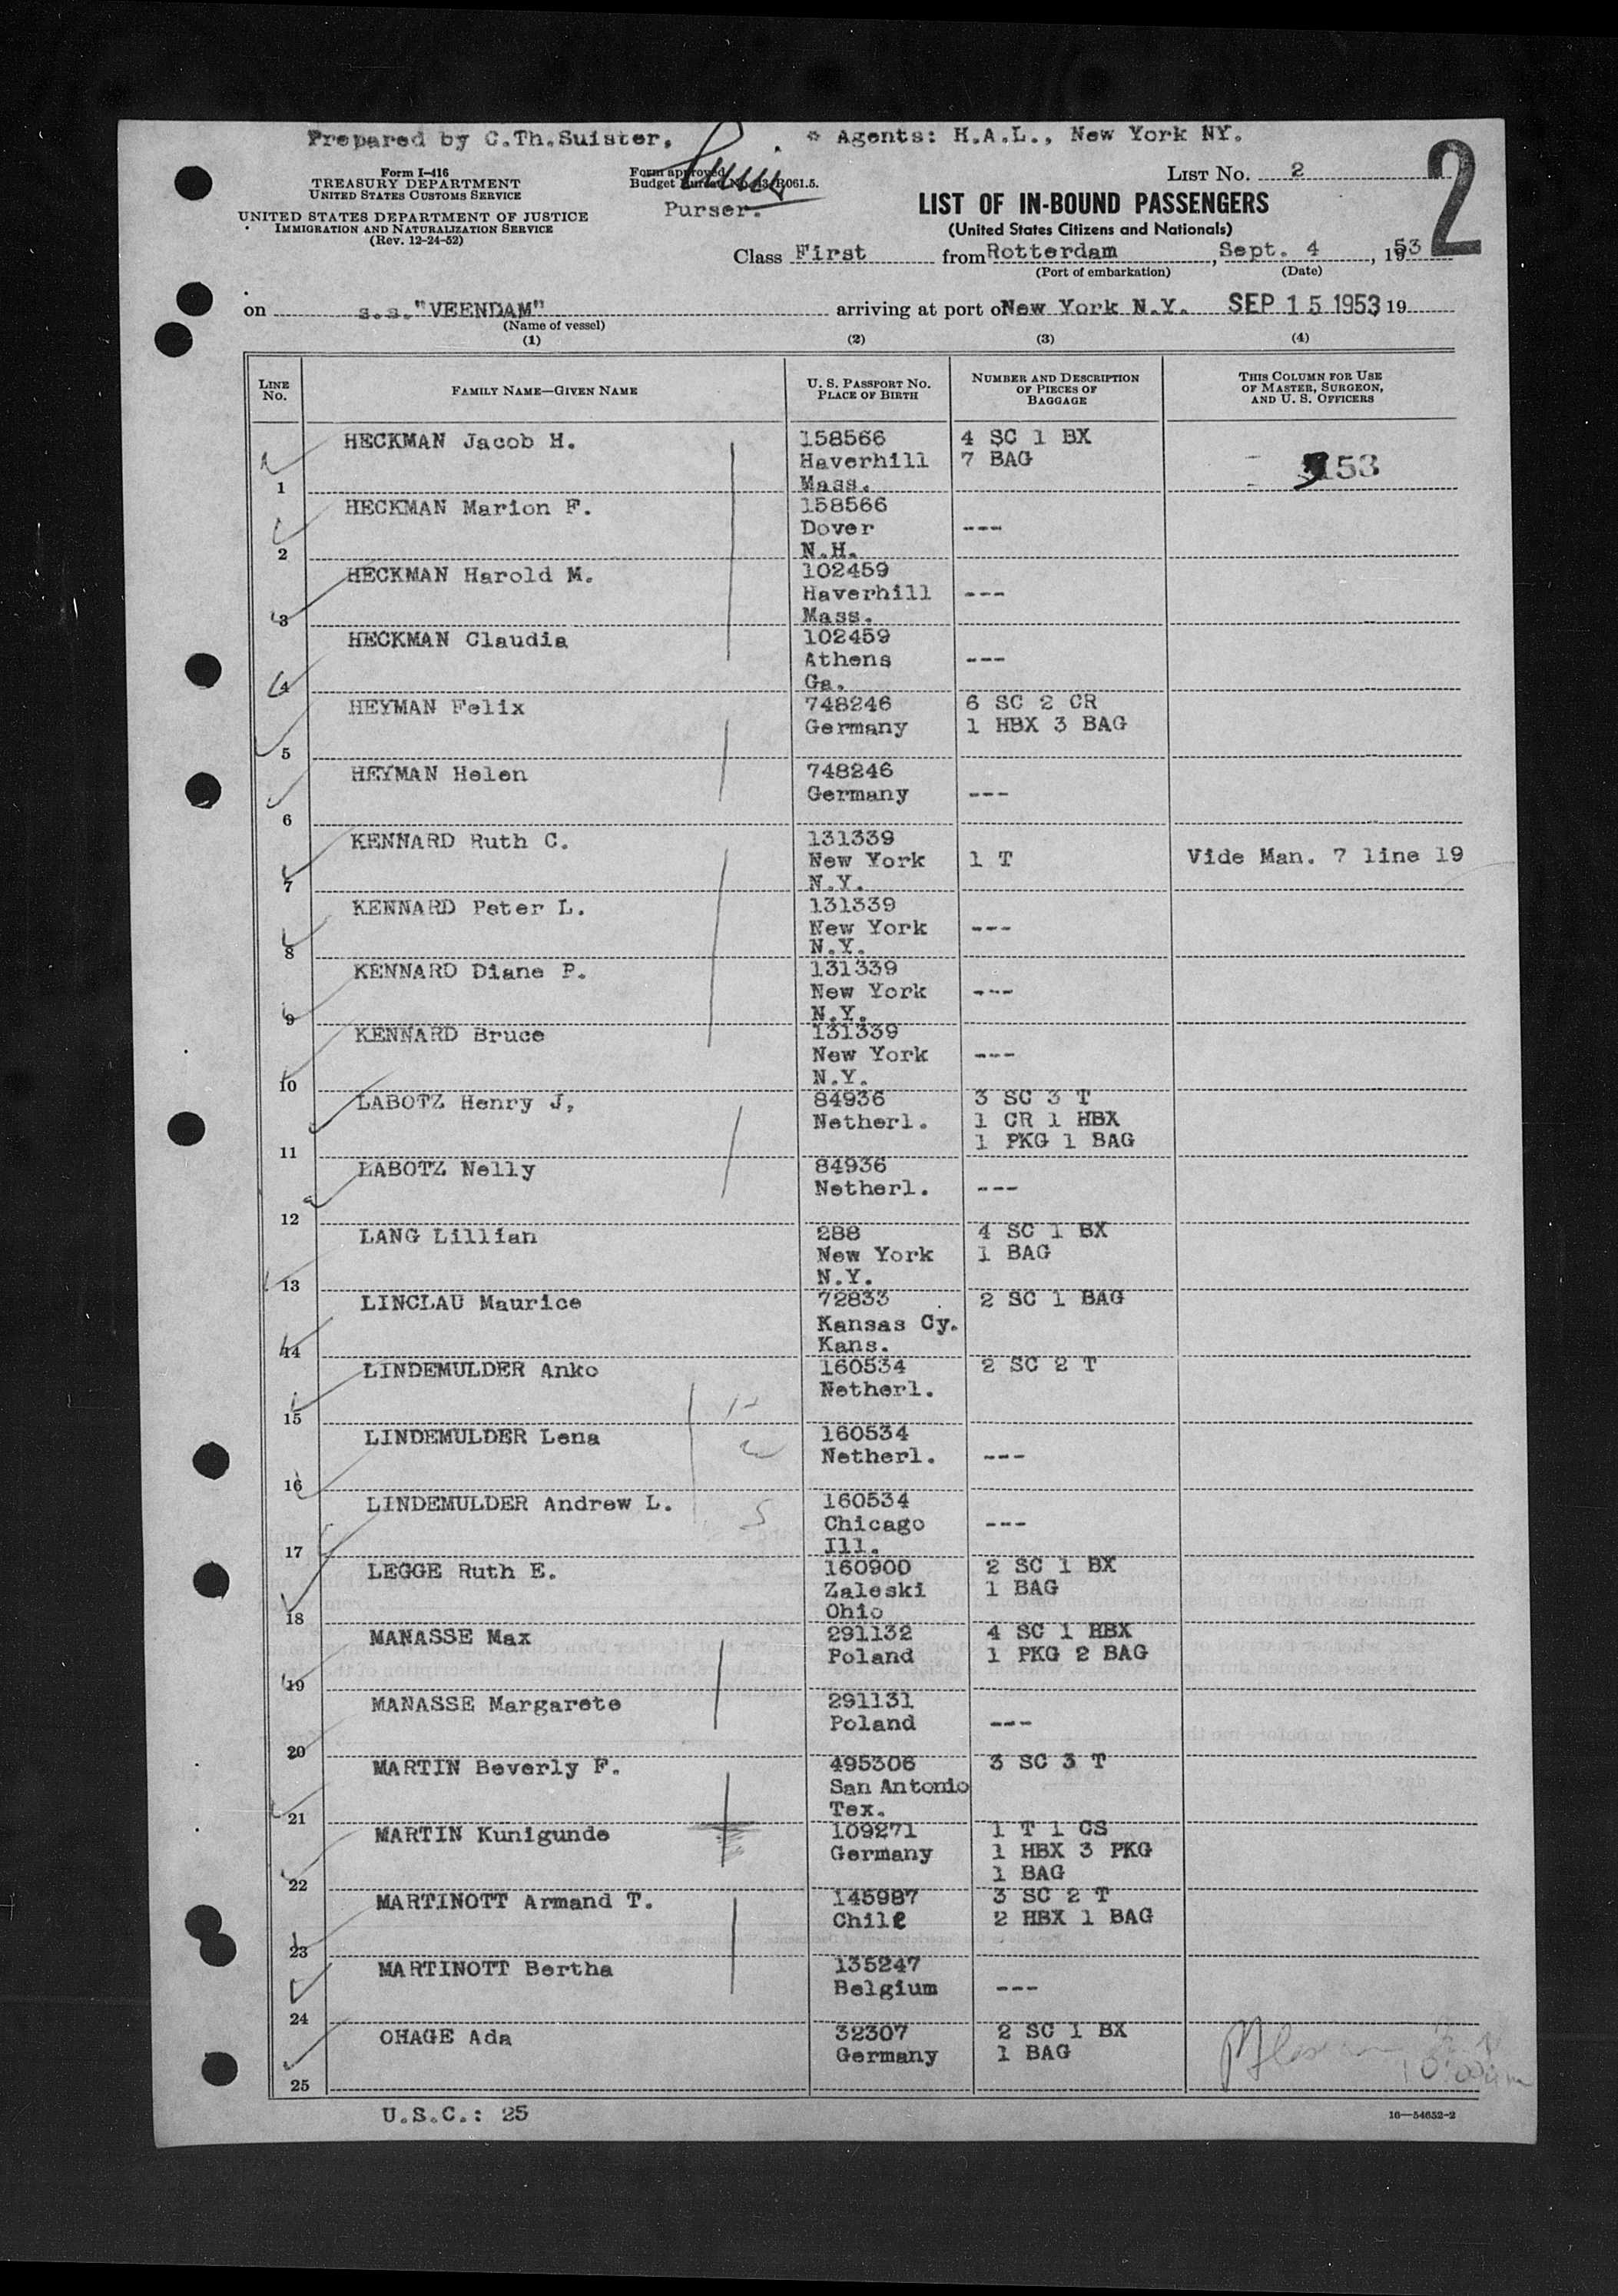 Prepared by C.Th.Suister, * Agents: H.A.L., New York NY.
Form I-416
TREASURY DEPARTMENT
UNITED STATES CUSTOMS SERVICE
UNITED STATES DEPARTMENT OF JUSTICE
IMMIGRATION AND NATURALIZATION SERVICE
(Rev. 12-24-52)
Form approved
Budget Bureau No. 43-R061.5.
Purser.
LIST NO. 2
2
LIST OF IN-BOUND PASSENGERS
(United States Citizens and Nationals)
Class First from Rotterdam, Sept. 4, 1953
(Port of embarkation) (Date)
on s.s."VEENDAM" arriving at port of New York N.Y. SEP 15 1953 19
(Name of vessel)
(1) (2) (3) (4)
LINE NO. FAMILY NAME—GIVEN NAME U. S. PASSPORT NO. PLACE OF BIRTH NUMBER AND DESCRIPTION OF PIECES OF BAGGAGE THIS COLUMN FOR USE OF MASTER, SURGEON, AND U. S. OFFICERS
HECKMAN Jacob H. 158566 4 SC 1 BX
Haverhill 7 BAG 153
1 Mass.
HECKMAN Marion F. 158566
Dover ---
2 N.H.
HECKMAN Harold M. 102459
Haverhill ---
3 Mass.
HECKMAN Claudia 102459
Athens ---
4 Ga.
HEYMAN Felix 748246 6 SC 2 CR
Germany 1 HBX 3 BAG
5
HEYMAN Helen 748246
Germany ---
6
KENNARD Ruth C. 131339
New York 1 T Vide Man. 7 line 19
7 N.Y.
KENNARD Peter L. 131339
New York ---
8 N.Y.
KENNARD Diane P. 131339
New York ---
9 N.Y.
KENNARD Bruce 131339
New York ---
10 N.Y.
LABOTZ Henry J, 84936 3 SC 3 T
Netherl. 1 CR 1 HBX
11 1 PKG 1 BAG
LABOTZ Nelly 84936
Netherl. ---
12
LANG Lillian 288 4 SC 1 BX
New York 1 BAG
13 N.Y.
LINCLAU Maurice 72833 2 SC 1 BAG
Kansas Cy.
14 Kans.
LINDEMULDER Anko 160534 2 SC 2 T
Netherl.
15
LINDEMULDER Lena 160534
Netherl. ---
16
LINDEMULDER Andrew L. 160534
Chicago ---
17 Ill.
LEGGE Ruth E. 160900 2 SC 1 BX
Zaleski 1 BAG
18 Ohio
MANASSE Max 291132 4 SC 1 HBX
Poland 1 PKG 2 BAG
19
MANASSE Margarete 291131
Poland ---
20
MARTIN Beverly F. 495306 3 SC 3 T
San Antonio
21 Tex.
MARTIN Kunigunde 109271 1 T 1 CS
Germany 1 HBX 3 PKG
22 1 BAG
MARTINOTT Armand T. 145987 3 SC 2 T
Chile 2 HBX 1 BAG
23
MARTINOTT Bertha 135247
Belgium ---
24
OHAGE Ada 32307 2 SC 1 BX
Germany 1 BAG
25
U.S.C.: 25 16—54652-2